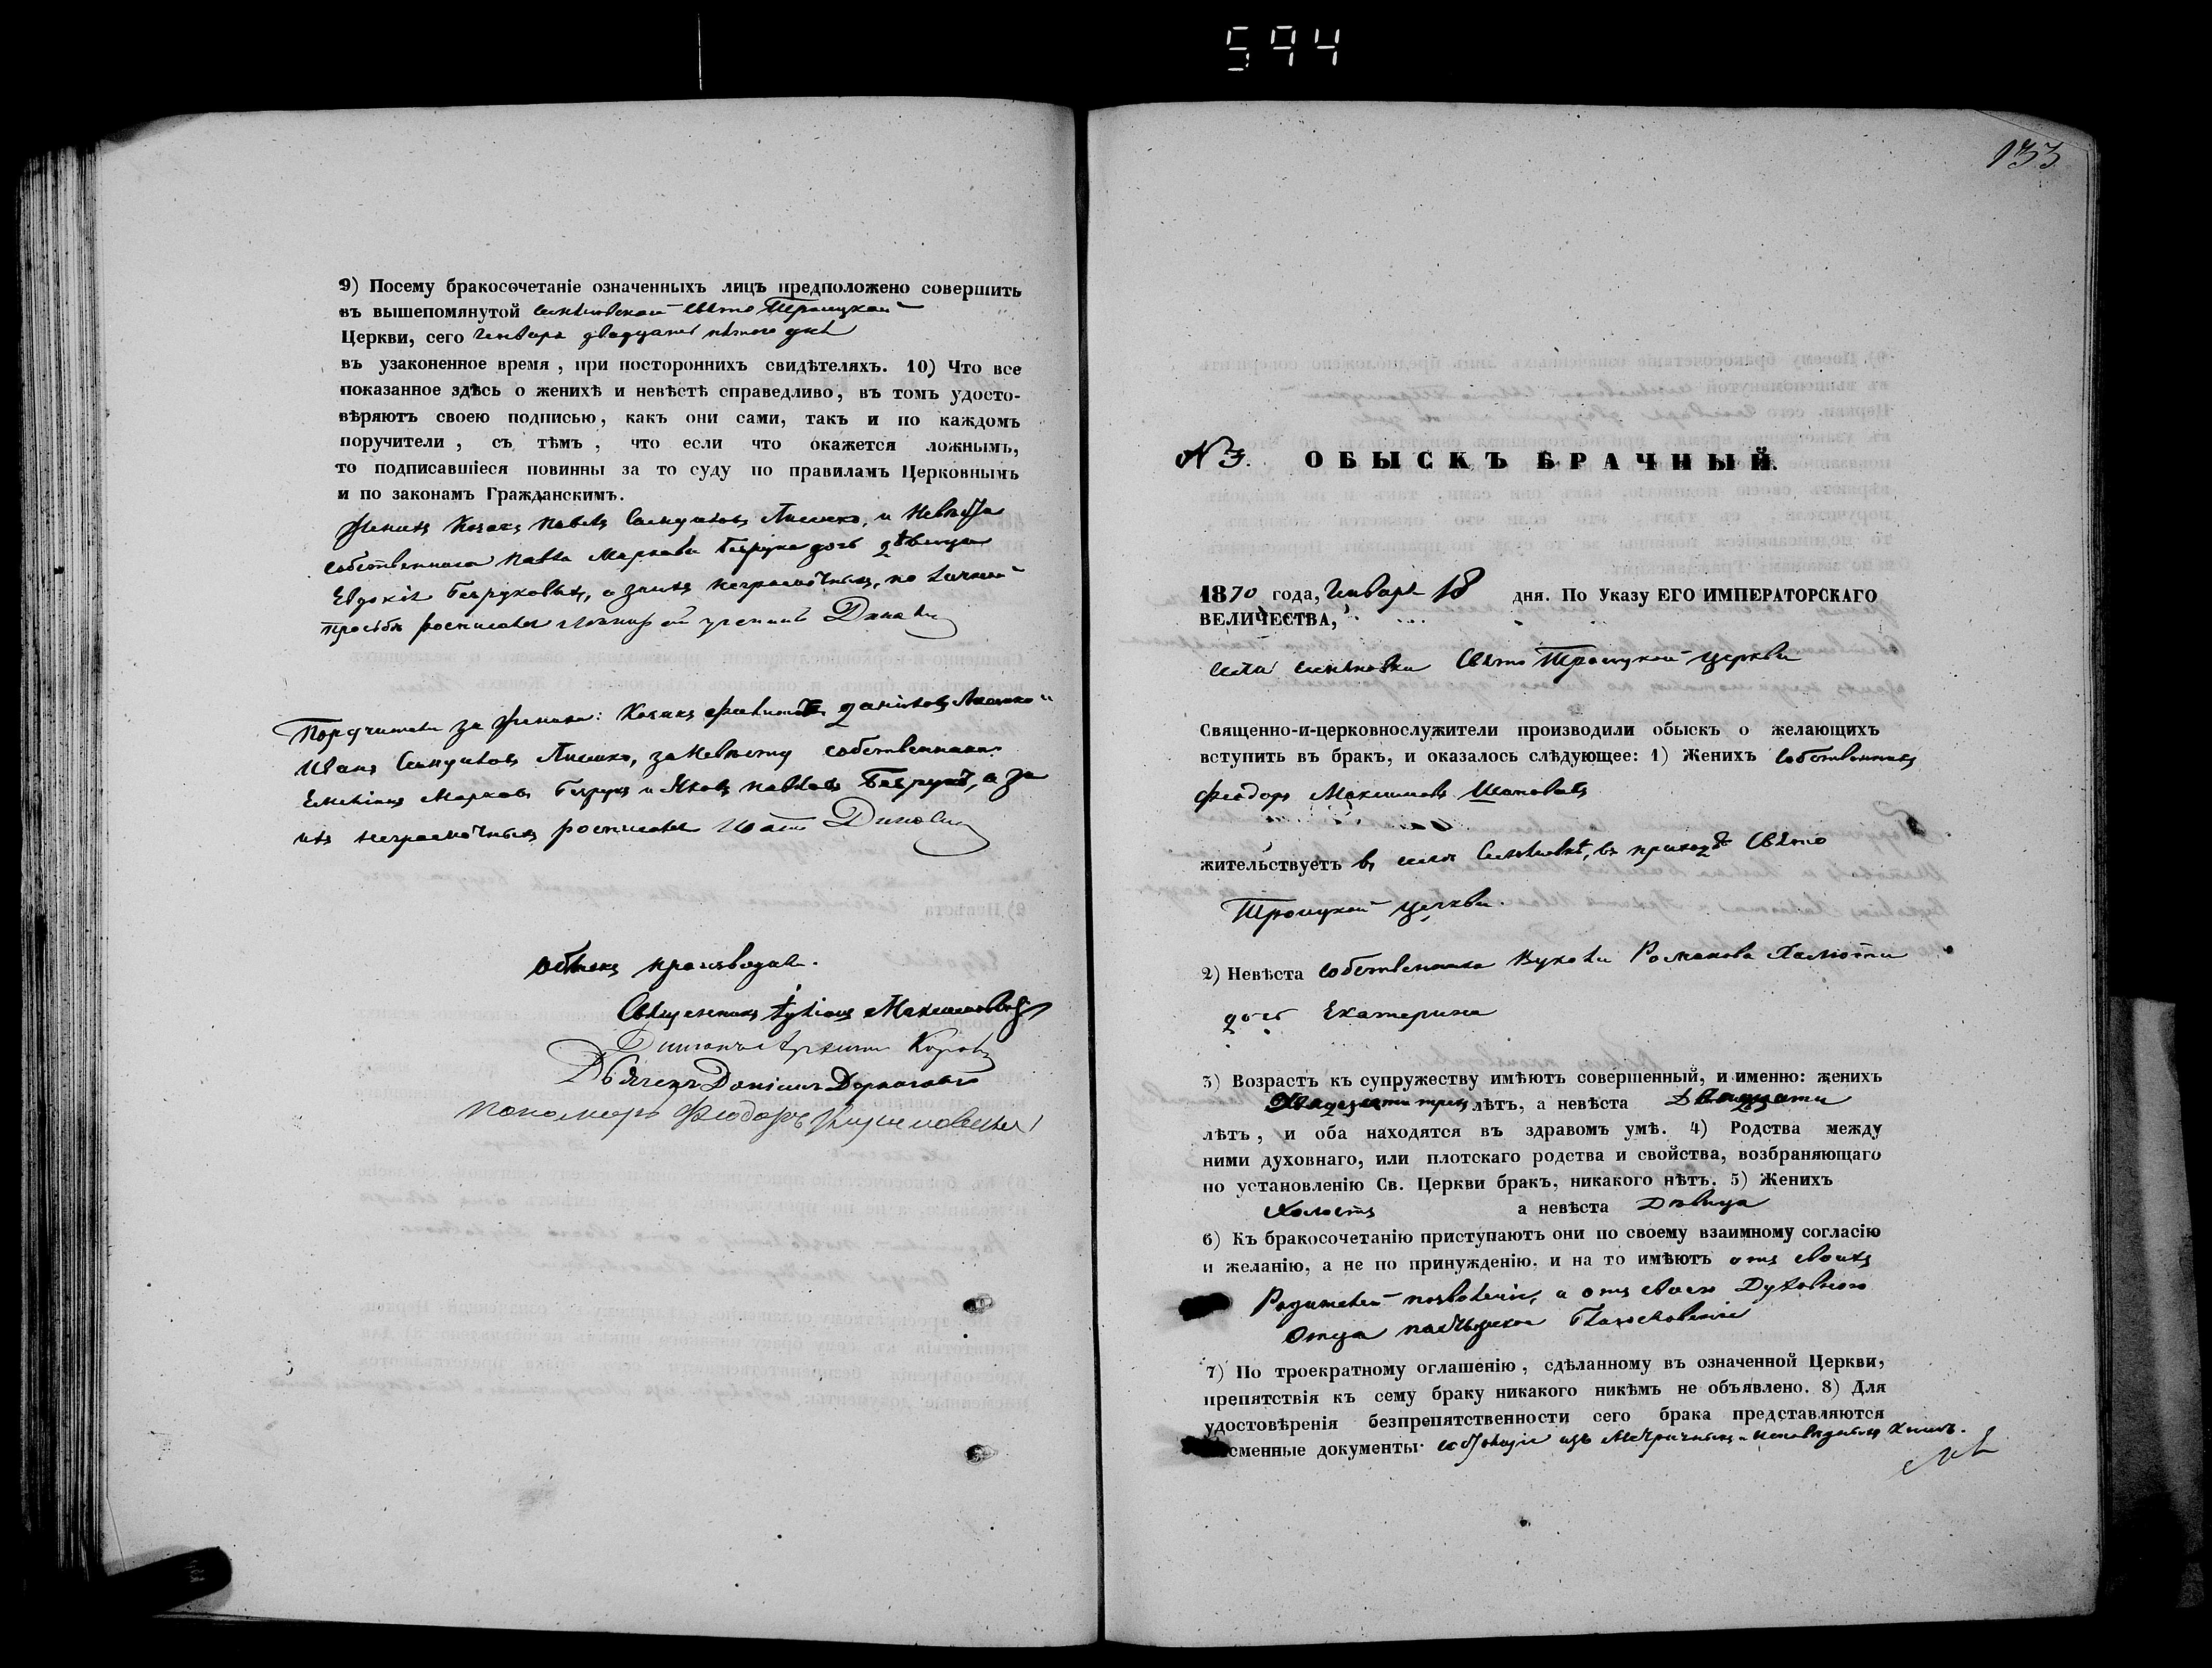 594
9) Посему бракосочетаніе означенныхъ лицъ предположено совершить
въ вышепомянутой Свято Троицкой
Церкви, сего Генваря двадцать пятого дня
въ узаконенное время, при постороннихъ свидѣтеляхъ. 10) Что все
показанное здѣсь о женихѣ и невѣстѣ справедливо, въ томъ удосто-
вѣряютъ своею подписью, какъ они сами, такъ и по каждомъ
поручители, съ тѣмъ, что если что окажется ложнымъ,
то подписавшіеся повинны за то суду по правиламъ Церковнымъ
и по законамъ Гражданскимъ.
Женихъ Козакъ Павелъ и Невѣста
собственника Павла Маркова дочь дѣвица
Евдокія а за ихъ неграмотныхъ, по личной
просьбѣ росписался
Поручители за жениха: Козакъ
Иванъ за невѣсту собственники
Марковъ и Яковъ Павловъ а за
ихъ неграмотныхъ росписался
обыскъ производили.
Священникъ
Даніилъ
пономарь Феодоръ
133
N 3. ОБЫСКЪ БРАЧНЫЙ.
1870 года, Генваря 18 дня. По Указу ЕГО ИМПЕРАТОРСКАГО
ВЕЛИЧЕСТВА,
села Свято Троицкой церкви
Священно-и-церковнослужители производили обыскъ о желающихъ
вступить въ бракъ, и оказалось слѣдующее: 1) Женихъ собственникъ
Феодоръ Максимовъ Шаповалъ
жительствуетъ въ селѣ въ приходѣ Свято
Троицкой церкви.
2) Невѣста собственника Романова
дочь Екатерина
3) Возрастъ къ супружеству имѣютъ совершенный, и именно: женихъ
Двадцати трехъ лѣтъ, а невѣста Двадцати
лѣтъ, и оба находятся въ здравомъ умѣ. 4) Родства между
ними духовнаго, или плотскаго родства и свойства, возбраняющаго
по установленію Св. Церкви бракъ, никакого нѣтъ. 5) Женихъ
Холостъ а невѣста Дѣвица
6) Къ бракосочетанію приступаютъ они по своему взаимному согласію
и желанію, а не по принужденію, и на то имѣютъ отъ своихъ
Родителей позволеніе, а отъ своего Духовного
Отца Благословеніе
7) По троекратному оглашенію, сдѣланному въ означенной Церкви,
препятствія къ сему браку никакого никѣмъ не объявлено. 8) Для
удостовѣренія безпрепятственности сего брака представляются
сменные документы изъ Метричныхъ и исповѣдныхъ Книгъ.